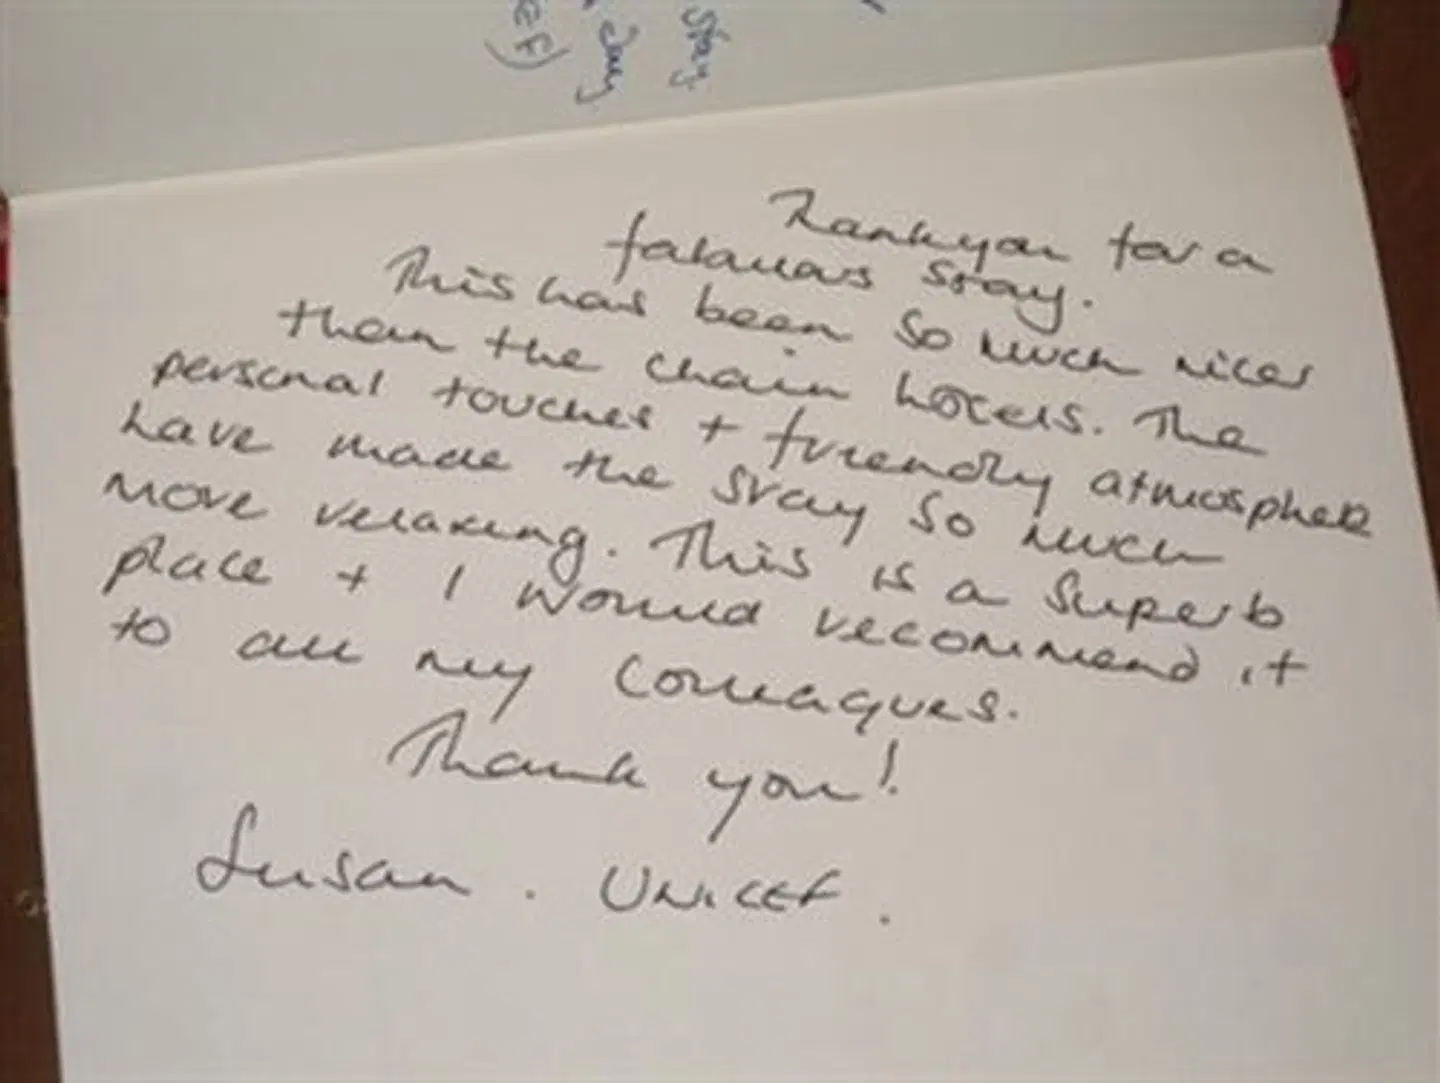 EF)
stay
Thankyou for a
fabulous stay.
This has been so much nicer
than the chain hotels. The
personal touches + friendly atmosphere
have made the stay so much
more relaxing. This is a superb
place + I would recommend it
to all my colleagues.
Thank you!
Susan. UNICEF.